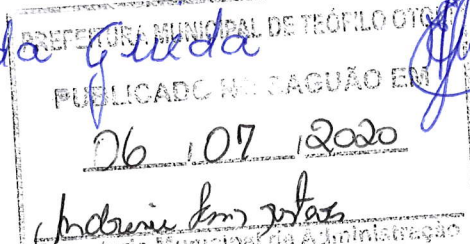 PREFEITURA MUNICIPAL DE TEÓFILO OTONI
da Gueda
PUBLICADO NO SAGUÃO EM
06 / 07 / 2020
Municipal de Administração